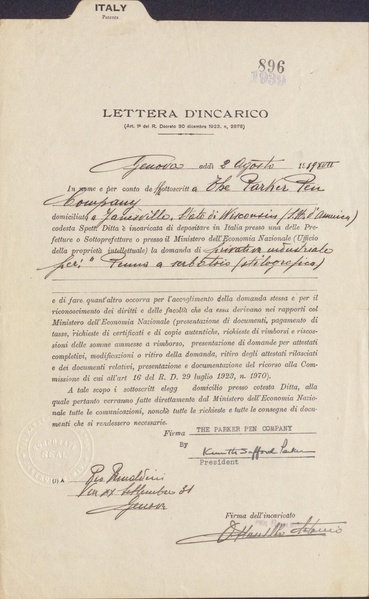 ITALY
Patents
896
1939
LETTERA D'INCARICO
(Art. 1º del R. Decreto 30 dicembre 1923, n. 3275)
Genova addì 2 Agosto
In nome e per conto de sottoscritt a The Parker Pen
Company
domiciliat a Janesville, Stato di Wisconsin (S.U. d'America)
codesta Spett. Ditta è incaricata di depositare in Italia presso una delle Pre-
fetture o Sottoprefetture o presso il Ministero dell'Economia Nazionale (Ufficio
della proprietà intellettuale) la domanda di privativa industriale
per: " Penna a serbatoio (stilografica)
e di fare quant'altro occorra per l'accoglimento della domanda stessa e per il
riconoscimento dei diritti e delle facoltà che da essa derivano nei rapporti col
Ministero dell'Economia Nazionale (presentazione di documenti, pagamento di
tasse, richieste di certificati e di copie autentiche, richieste di rimborsi e riscos-
sioni delle somme ammesse a rimborso, presentazione di domande per attestati
completivi, modificazioni o ritiro della domanda, ritiro degli attestati rilasciati
e dei documenti relativi, presentazione e documentazione del ricorso alla Com-
missione di cui all'art 16 del R. D. 29 luglio 1923, n. 1970).
A tale scopo i sottoscritt elegg domicilio presso codesta Ditta, alla
quale pertanto verranno fatte direttamente dal Ministero dell'Economia Nazio-
nale tutte le comunicazioni, nonchè tutte le richieste e tutte le consegne di docu-
menti che si rendessero necessarie.
Firma THE PARKER PEN COMPANY
By Kenneth Safford Parker
President
(1) A
Via XX Settembre 31
Genova
Firma dell'incaricato